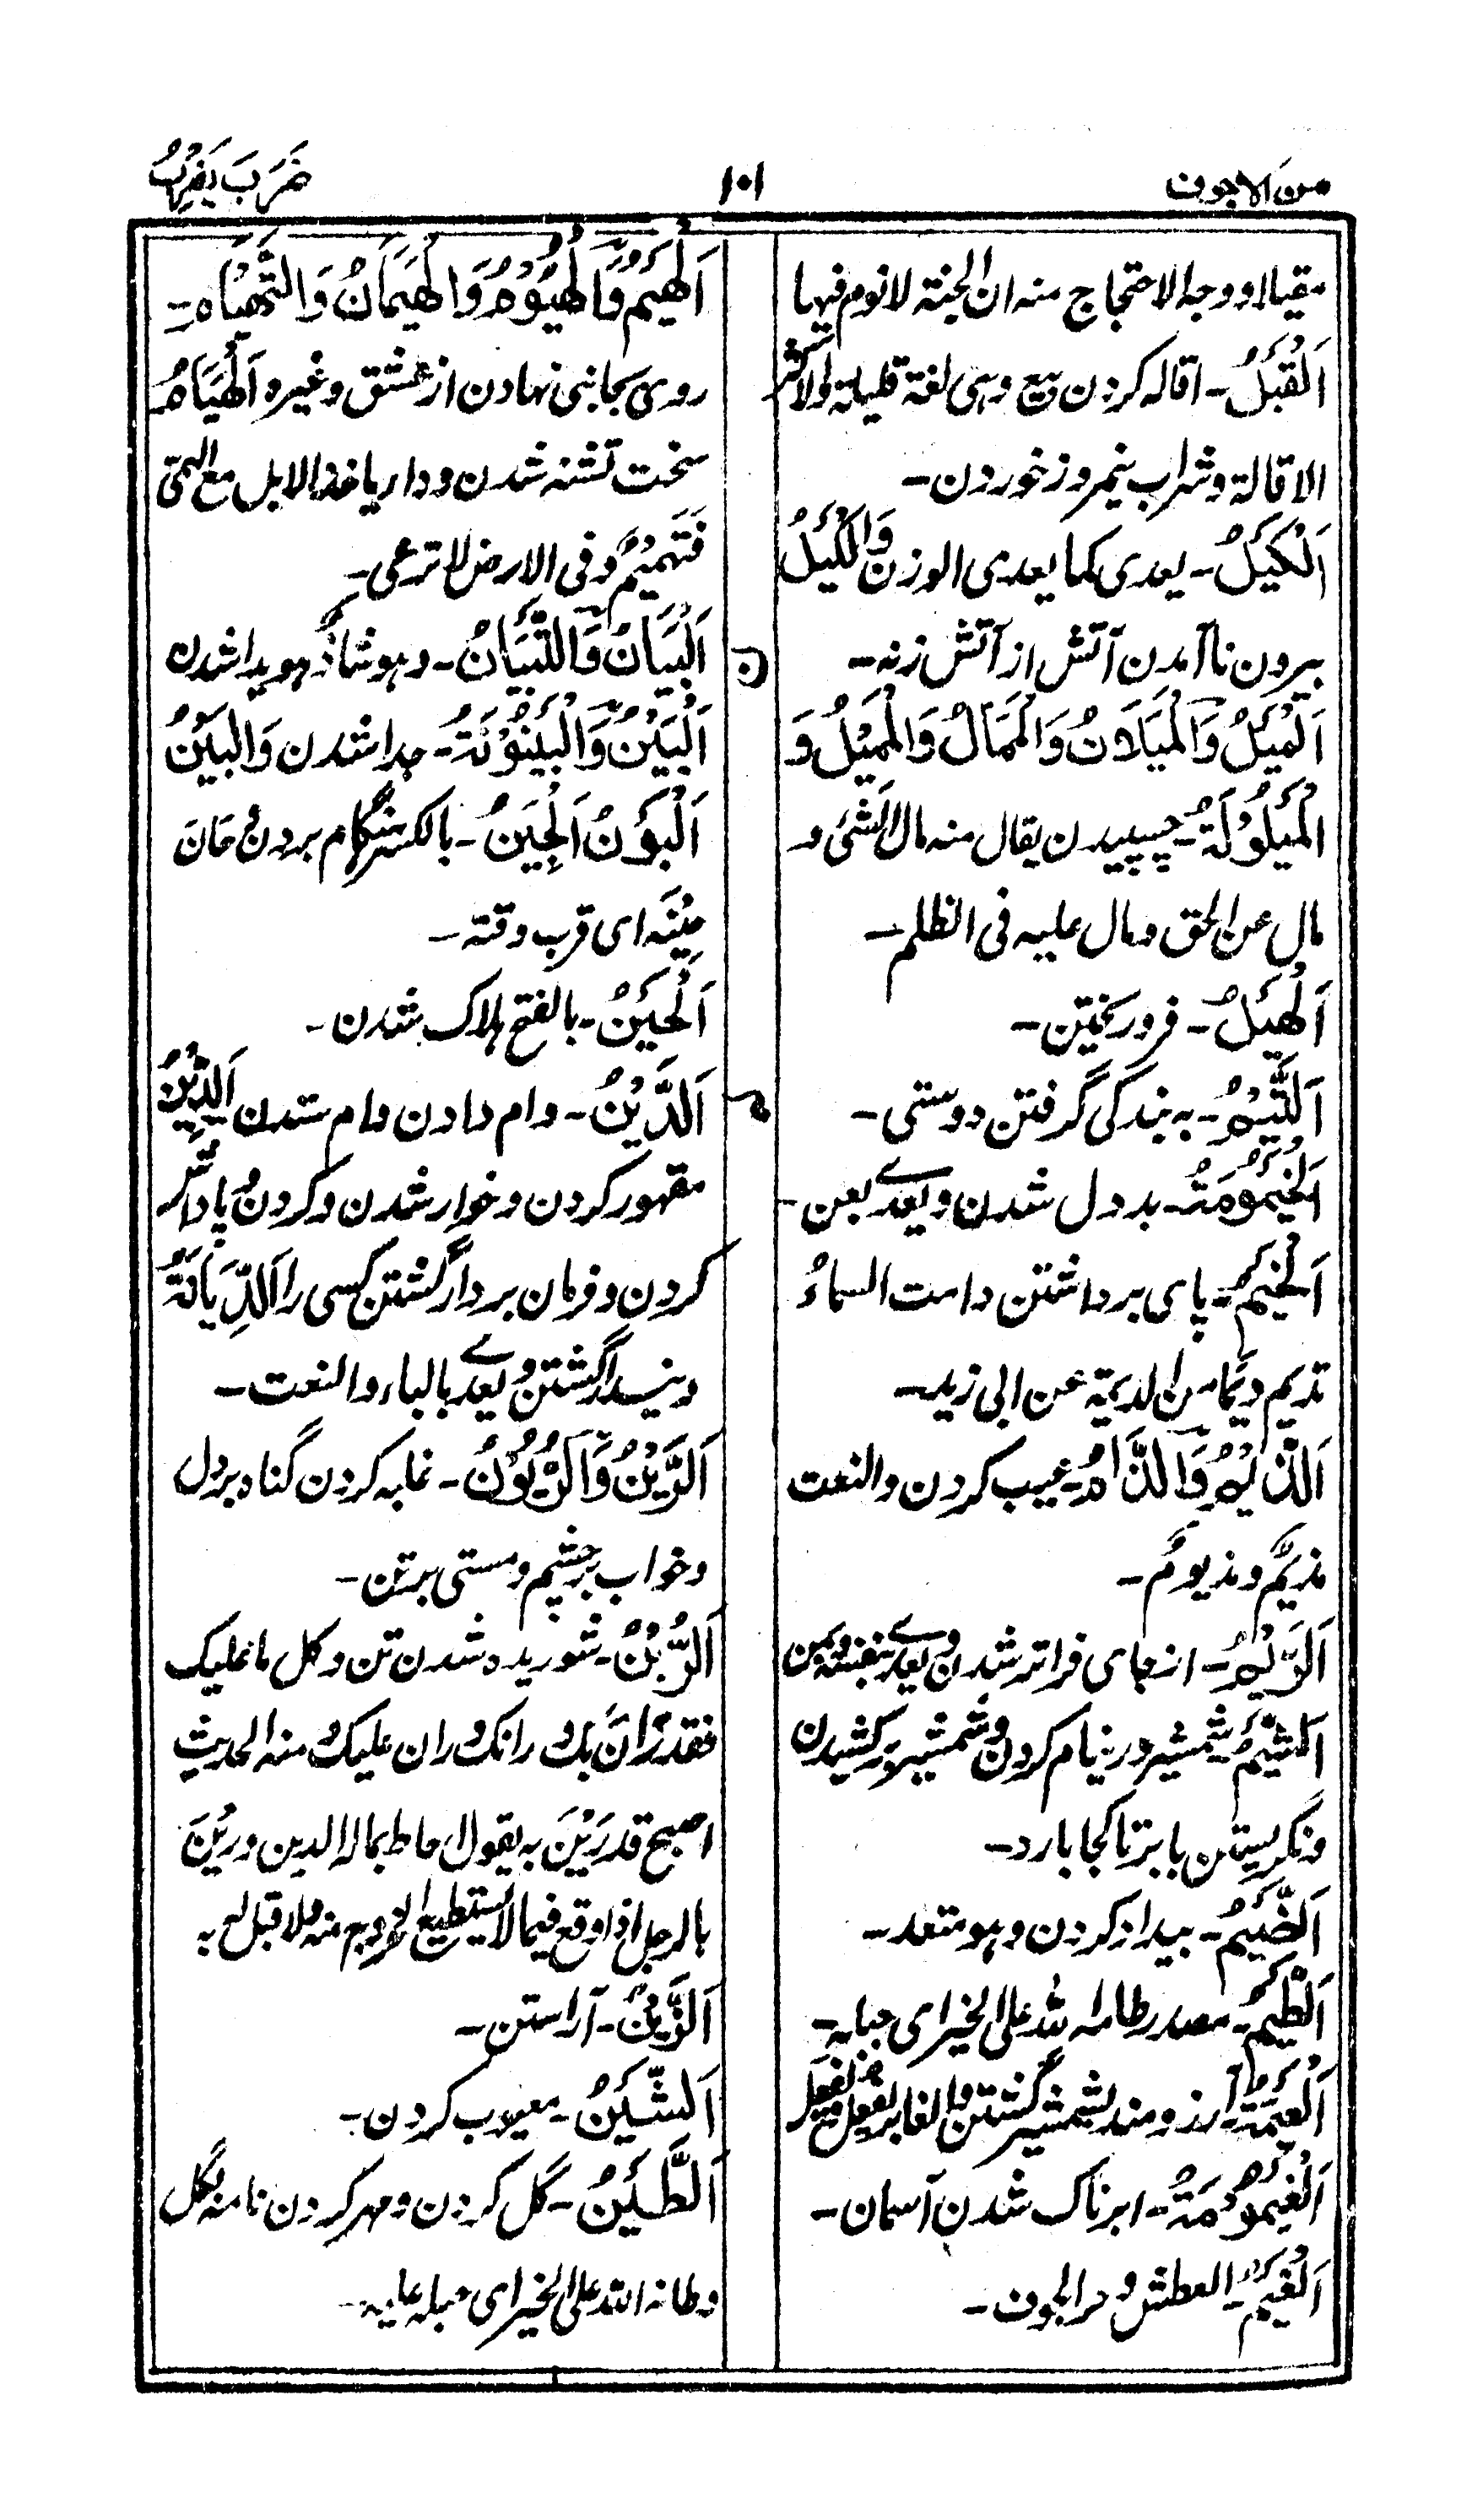 من الاجوف
١٠١
ضَرَبَ يَضْرِبُ
مقیلا و وجه الاحتجاج منه ان الجنة لا نوم فیها
اَلْقَیْلُ۔ اقاله کردن بیع وهی لغة قلیلة والاکثر
الاقالة وشراب نیمروز خوردن۔
اَلْکَیْلُ۔ یعدی کما یعدی الوزن وَالْکَیْلُ
بیرون نا آمدن آتش از آتش زنه۔
اَلْمَیْلُ وَالْمَیَلَانُ وَالْمَمَالُ وَالْمَمِیْلُ وَ
الْمَیْلُوْلَةُ۔ چسپیدن یقال منه مال الشئ و
مال عن الحق ومال علیه فی الظلم۔
اَلْهَیْلُ۔ فرو ریختن۔
م
اَلتَّیْمُ۔ به بندگی گرفتن دوستی۔
اَلْخَیْمُوْمَةُ۔ بد دل شدن و یعدے بعن۔
اَلْخَیْمُ۔ پای برداشتن دامت السماءُ
تدیم دیما من الدیمة عن ابی زید۔
اَلذَّیْمُ وَالذَّامُ۔ عیب کردن والنعت
مذیمٌ و مذیومٌ۔
اَلرَّیْمُ۔ از جای فراتر شدن و یعدے بنفسه وبمن
اَلشَّیْمُ۔ شمشیر در نیام کردن و شمشیر برکشیدن
و نگریستن بابر تا کجا بارد۔
اَلضَّیْمُ۔ بیداد کردن وهو متعد۔
اَلطَّیْمُ۔ مصدر طامه الله علی الخیر ای جبله۔
اَلْعَیْمَةُ۔ آرزومند بشیر گشتن والغابر یفعل
اَلْغَیْمُوْمَةُ۔ ابرناک شدن آسمان۔
اَلْغَیْمُ۔ العطش و حر الجوف۔
اَلْهَیْمُ وَالْهُیُوْمُ وَالْهَیَمَانُ وَالتَّهْیَامُ۔
روی بجانبی نهادن از عشق و غیره اَلْهُیَامُ
سخت تشنه شدن و داء یاخذ الابل مع الحمی
فَتَهِیْمُ فی الارض لا ترعی۔
ن
اَلْبَیَانُ وَالتِّبْیَانُ۔ وهو شاذ هویدا شدن
اَلْبَیْنُ وَالْبَیْنُوْنَةُ۔ جدا شدن وَالْبَیْنُ
اَلْبَوْنُ اَلْحِیْنُ۔ بالکسر هنگام بودن حَانَ
حِیْنُهٗ ای قرب وقته۔
اَلْحَیْنُ۔ بالفتح هلاک شدن۔
اَلدَّیْنُ۔ وام دادن وام ستدن اَلدِّیْنُ
مقهور کردن و خوار شدن و کردن پاداش
کردن و فرمان بردار گشتن کسی را اَلدِّیَانَةُ
دیندار گشتن و یعدے بالباء والنعت۔
اَلرَّیْنُ وَالرُّیُوْنُ۔ غلبه کردن گناه بر دل
و خواب بر چشم و مستی بر تن۔
اَلرَّیْنُ۔ شوریده شدن تن و کل ما غلبک
فقد رَانَ بک و رانک و ران علیک و منه الحدیث
اصبح قد رِیْنَ به یقول احاط بماله الدین و رِیْنَ
بالرجل اذا وقع فیما لا یستطیع الخروج منه ولا قبل له به
اَلزَّیْنُ۔ آراستن۔
اَلشَّیْنُ۔ معیوب کردن۔
اَلطَّیْنُ۔ گل کردن و مهر کردن نامه بگل
وطانه الله علی الخیر ای جبله علیه۔